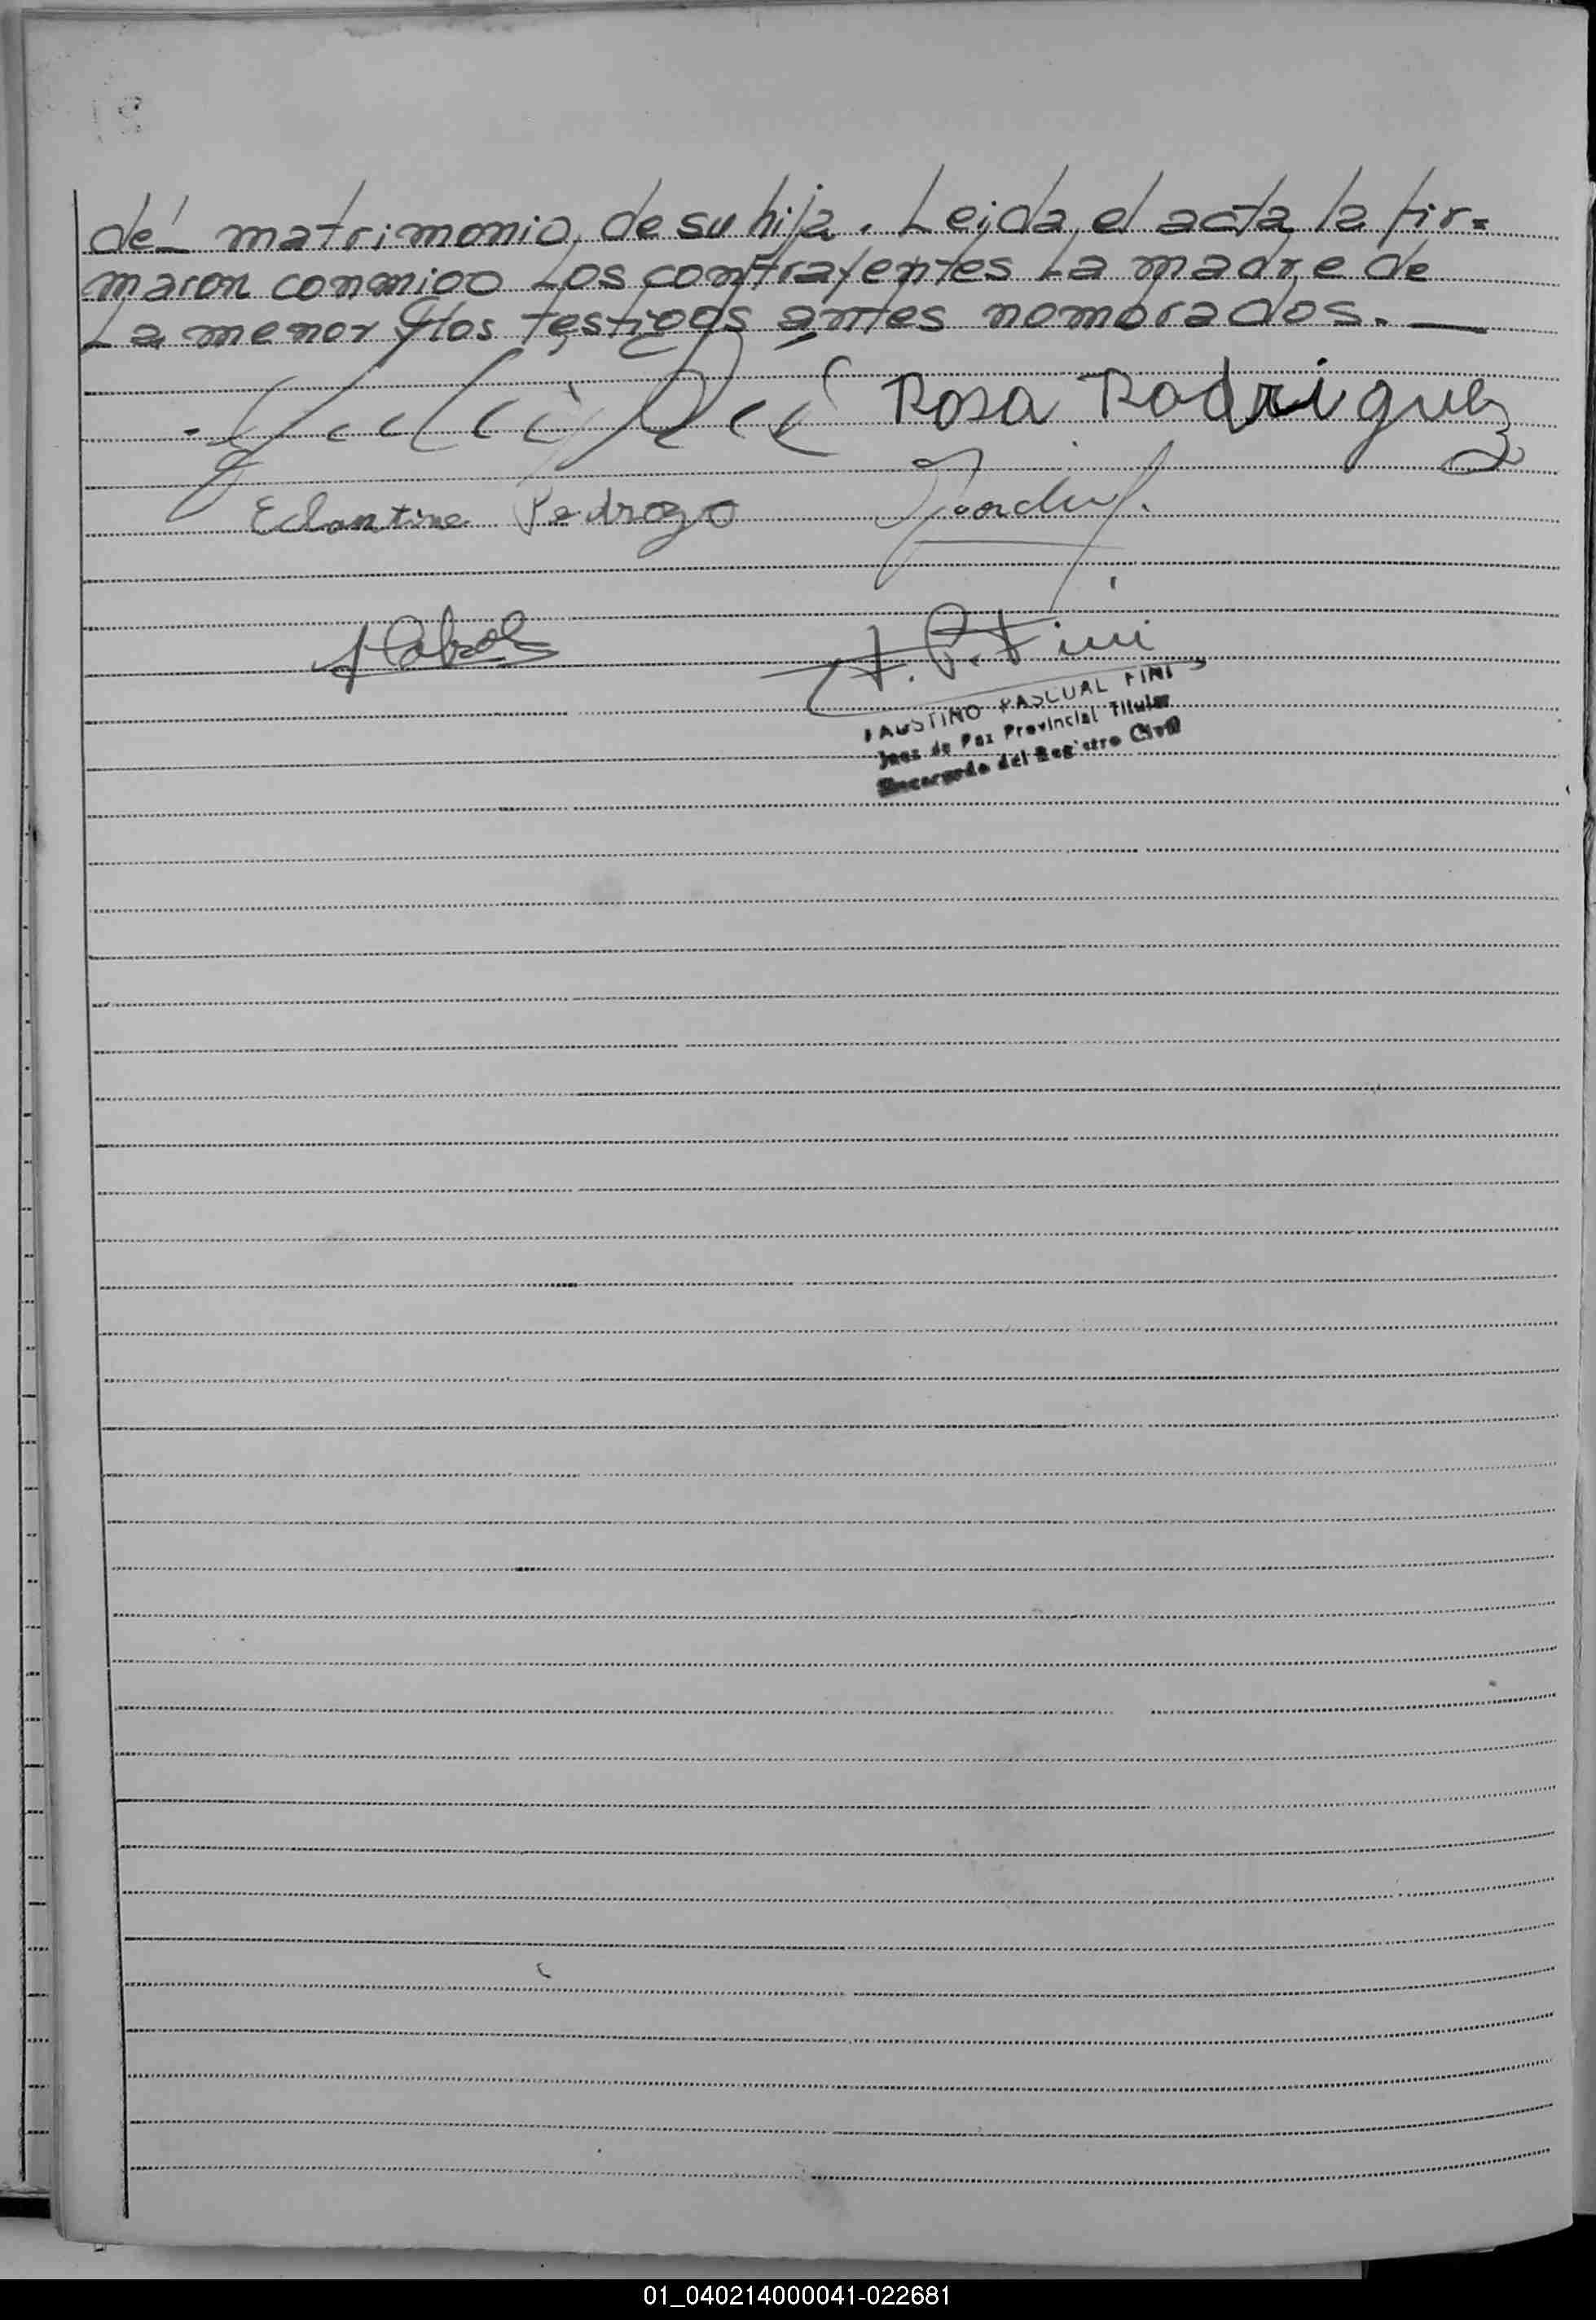 del matrimonio, de su hija. Leida el acta la fir=
maron conmigo Los contrayentes La madre de
La menor y los testigos antes nombrados. —
Rosa Rodriguez
Eclantina Pedrozo
F. P. Fini
FAUSTINO PASCUAL FINI
Juez de Paz Provincial Titular
Encargado del Registro Civil
01_040214000041-022681